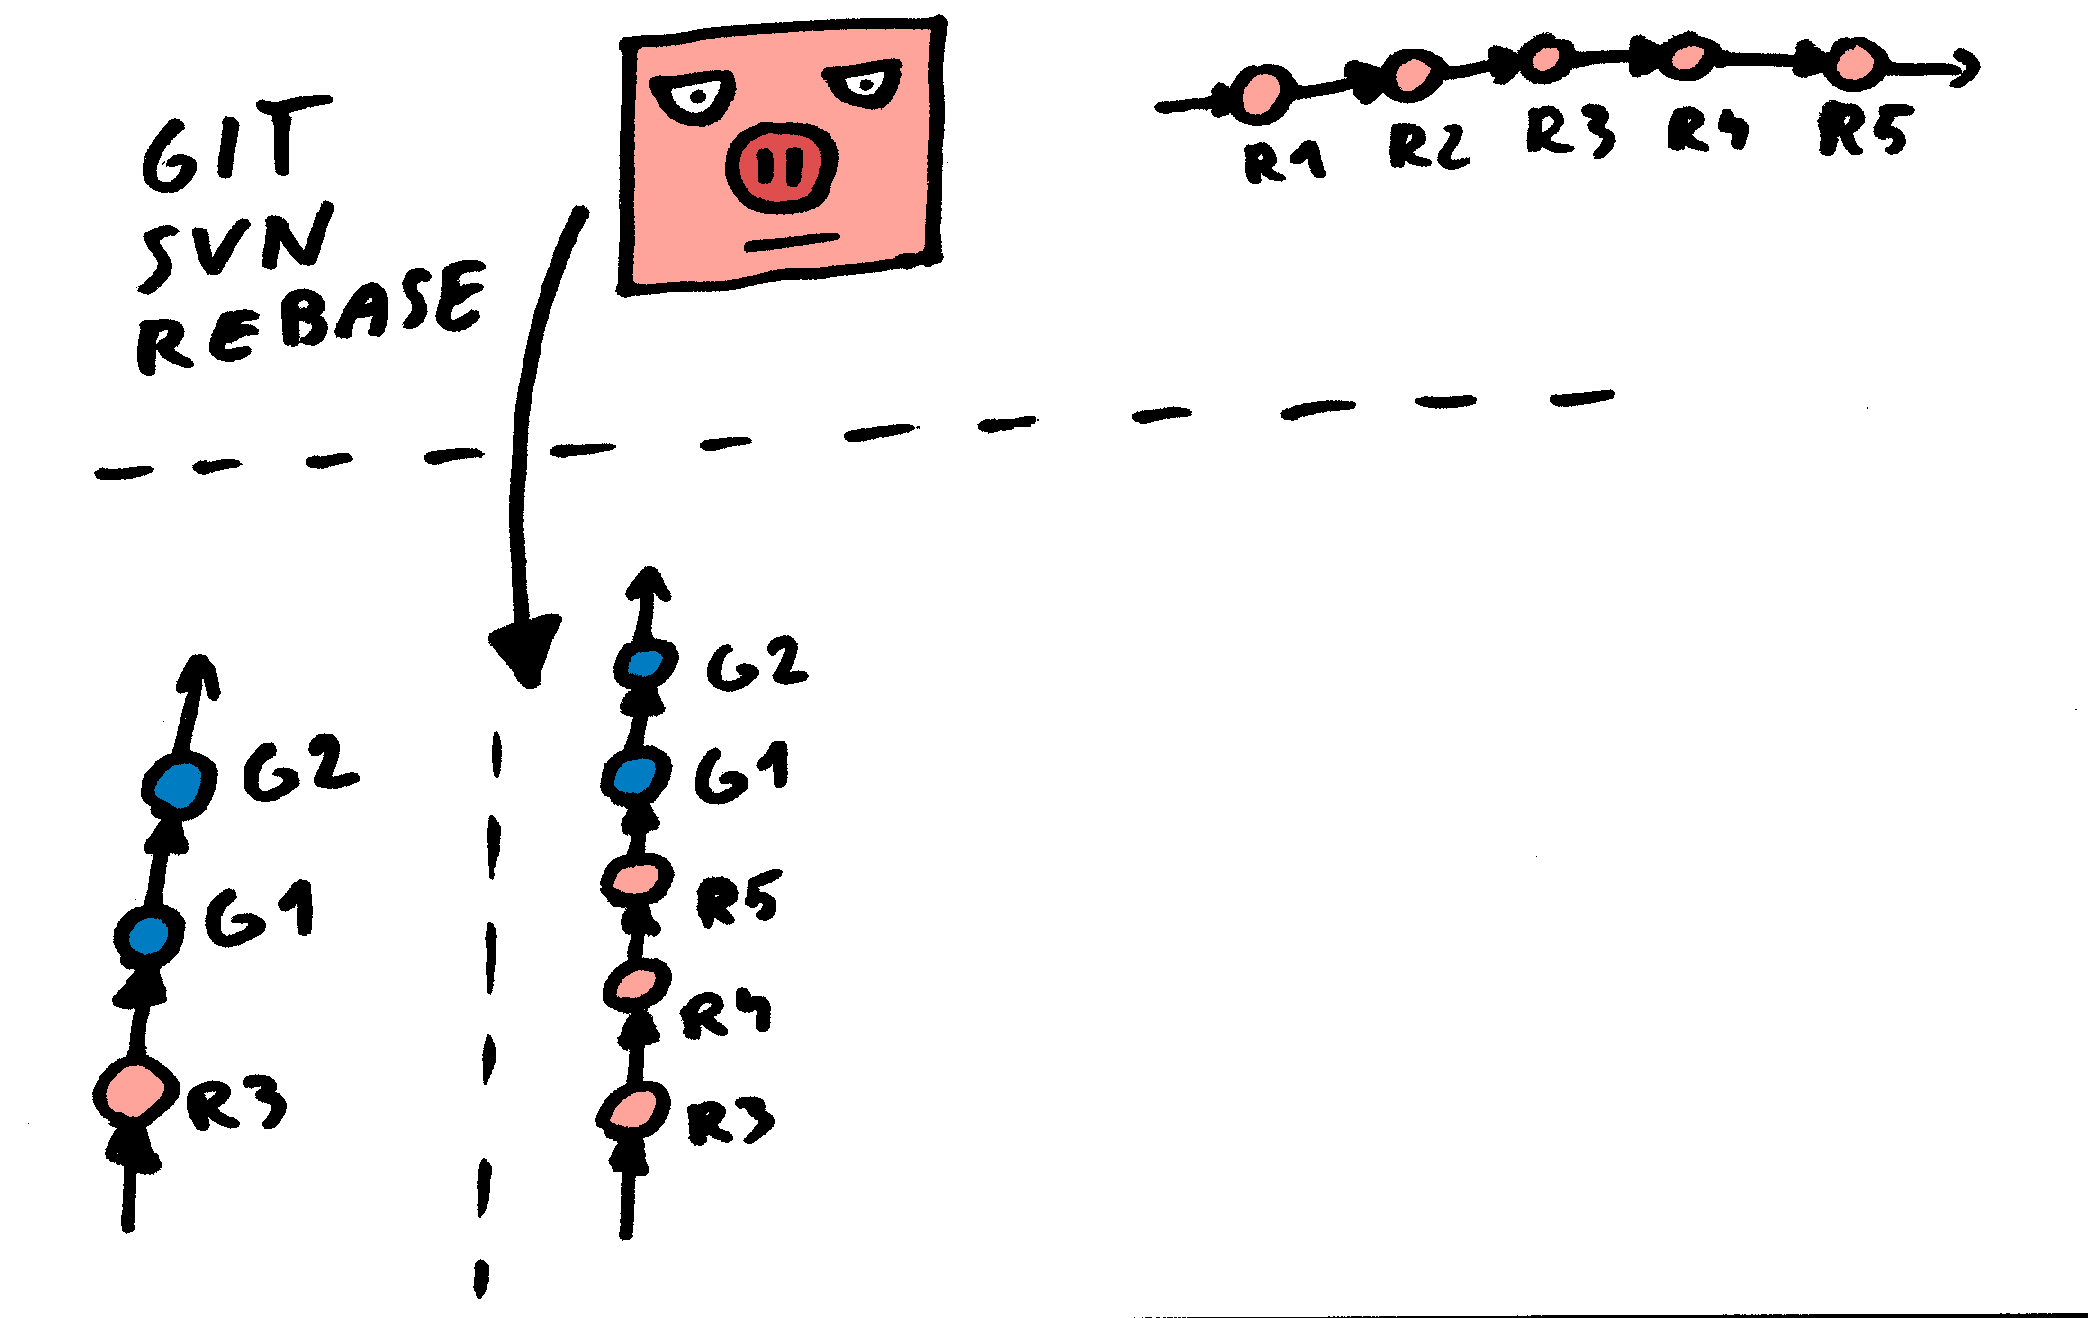 GIT
SVN
REBASE
R1 R2 R3 R4 R5
G2
G1
R3
G2
G1
R5
R4
R3